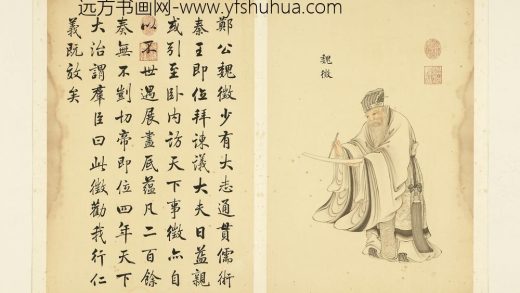 远方书画网-www.yfshuhua.com
魏徵
鄭公魏徵少有大志通貫儒術
秦王即位拜諫議大夫日益親
或引至卧内訪天下事徵亦自
以不世遇展盡底蘊凡二百餘
奏無不剴切帝即位四年天下
大治謂羣臣曰此徵勸我行仁
義既效矣